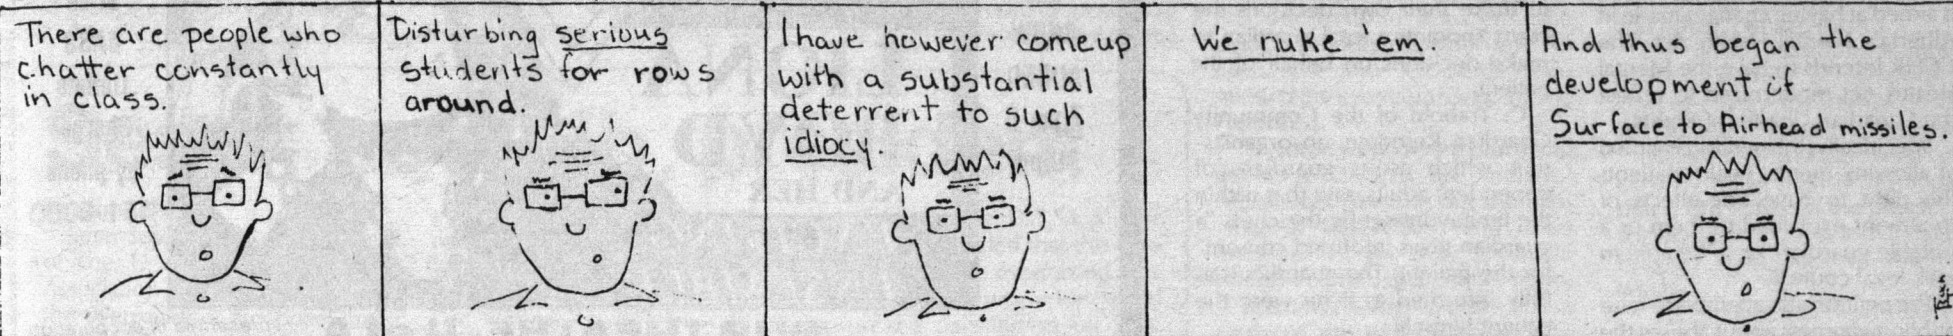 There are people who
chatter constantly
in class.
Disturbing serious
students for rows
around.
I have however come up
with a substantial
deterrent to such
idiocy.
We nuke 'em.
And thus began the
development if
Surface to Airhead missiles.